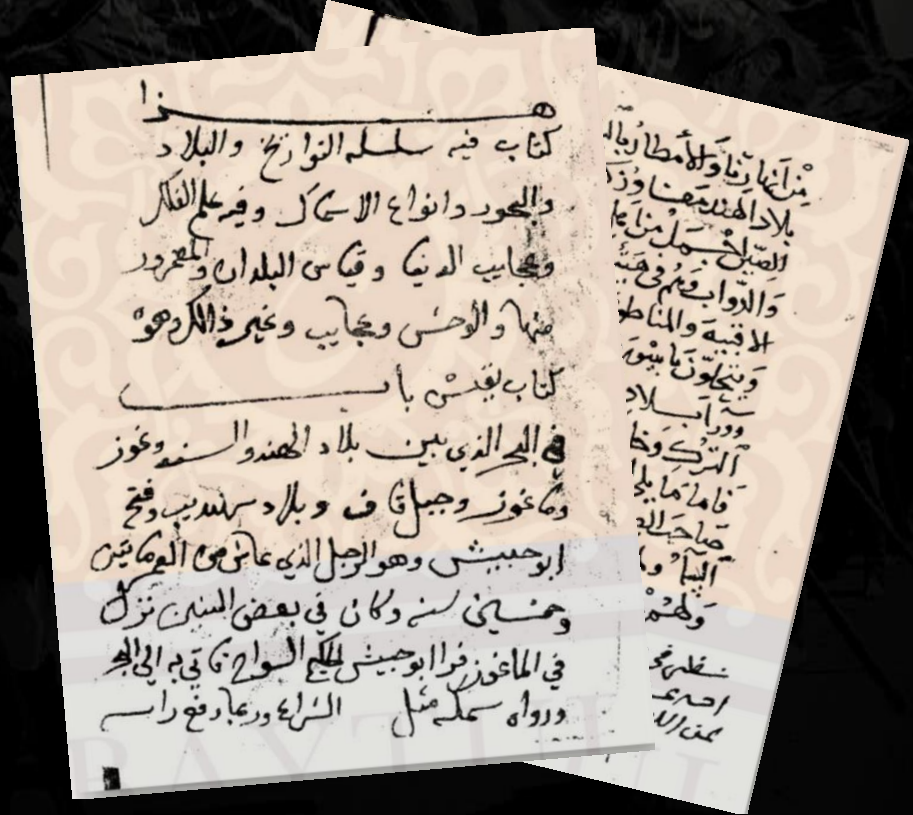 هذا
كتاب فيه سلسله التواريخ والبلاد
والبحور وانواع الاسماك وفيه علم الفلك
وعجايب الدنيا وقياس البلدان والمعمور
منها والوحش وعجايب وغير ذالك وهو
كتاب نفيس باب
في البحر الذي بين بلاد الهند والسند وغوز
وماغوز وجبل قاف وبلاد سرنديب وفتح
ابو حبيش وهو الرجل الذي عاش من العمر مائتين
وخمسين سنه وكان في بعض السنين نزل
في الماغوز فراا ابو حبيش الحكيم السواح فاتي به الي البحر
ورواه سمكه مثل الشراع وربما رفع راسه
من انهارنا والامطار
بلاد الهند
الصين اجمل من
والدواب وهم في
الاقبية والمناطق
آلترك
فاما ما يلي
صاحب
ولهم